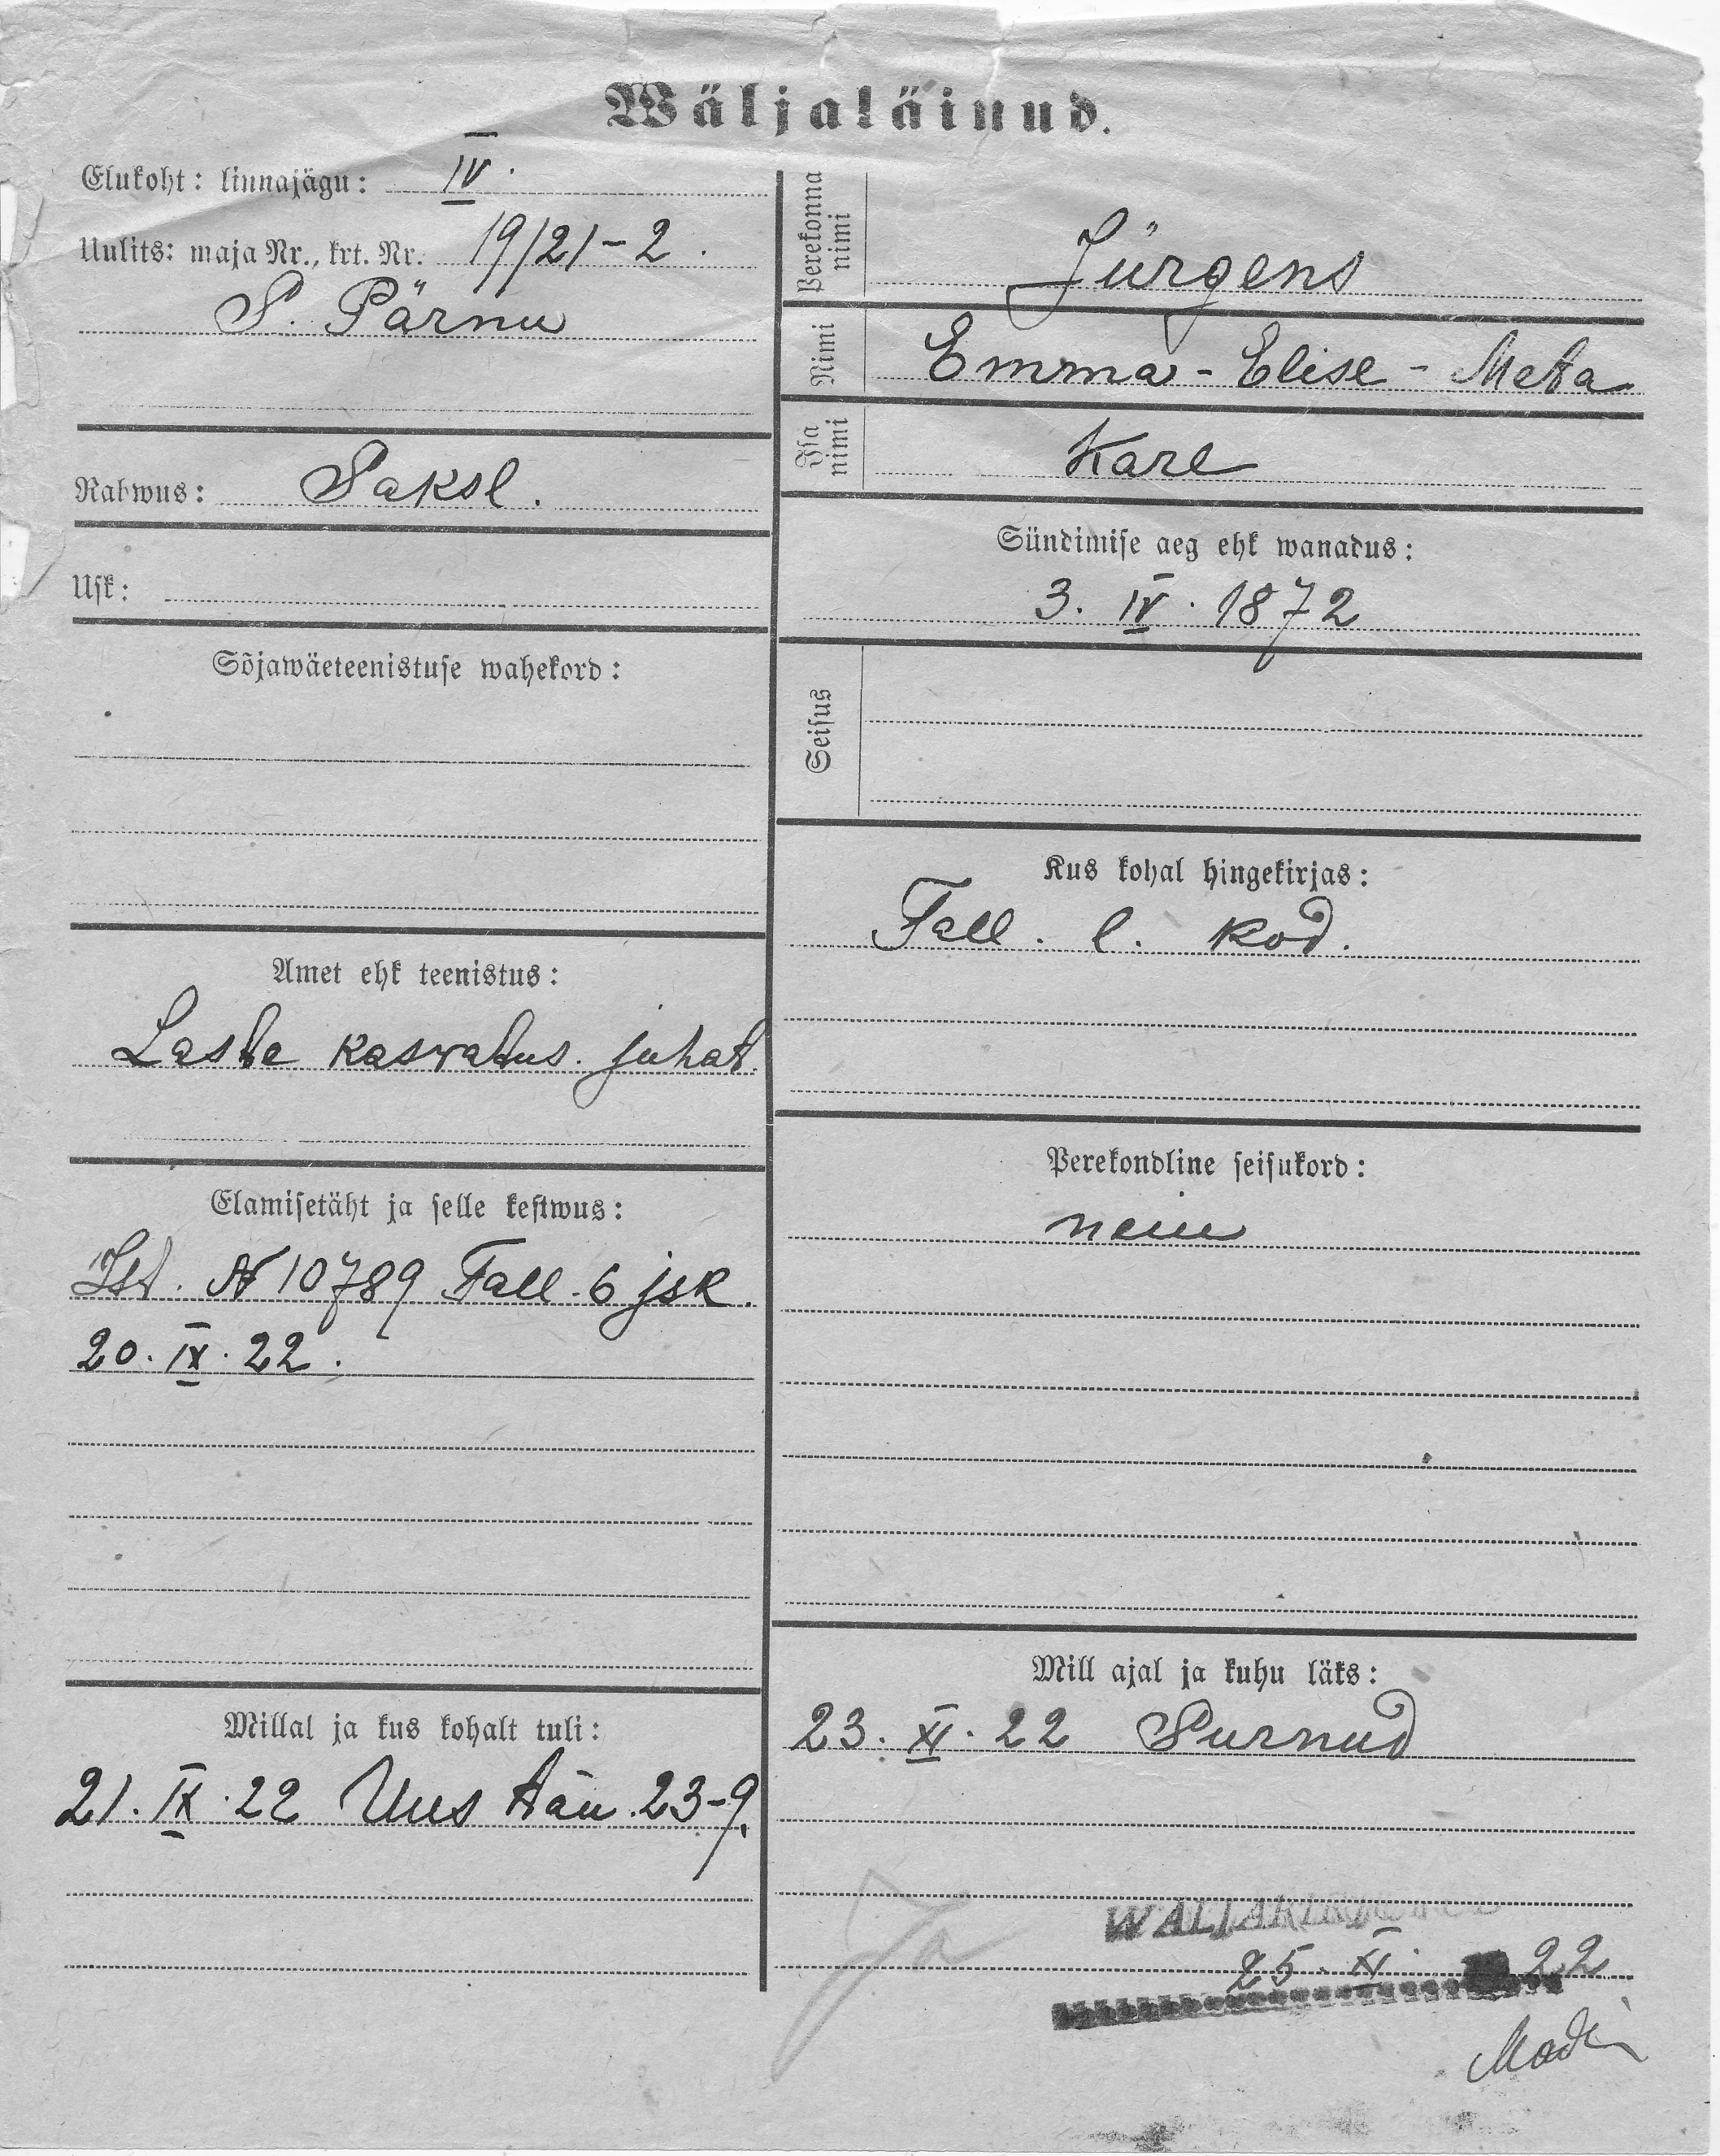 Wäljaläinud.
Elukoht: linnajägu: IV.
Uulits: maja Nr., krt. Nr. 19/21-2.
S. Pärnu
Rahwus: Saksl.
Usk:
Sõjawäeteenistuse wahekord:
Amet ehk teenistus:
Laste kaswatus. juhat.
Elamisetäht ja selle kestwus:
Ist. N 10789 Tall. 6 jsk.
20. IX. 22.
Millal ja kus kohalt tuli:
21. IX. 22 Uus tän. 23-9.
Perekonna nimi
Jürgens
Nimi
Emma-Elise-Meta
Isa nimi
Karl
Sündimise aeg ehk wanadus:
3. IV. 1872
Seisus
Kus kohal hingekirjas:
Tall. l. kod.
Perekondline seisukord:
neiu
Mill ajal ja kuhu läks:
23. XI. 22 Surnud
Ja
25. XI. 22